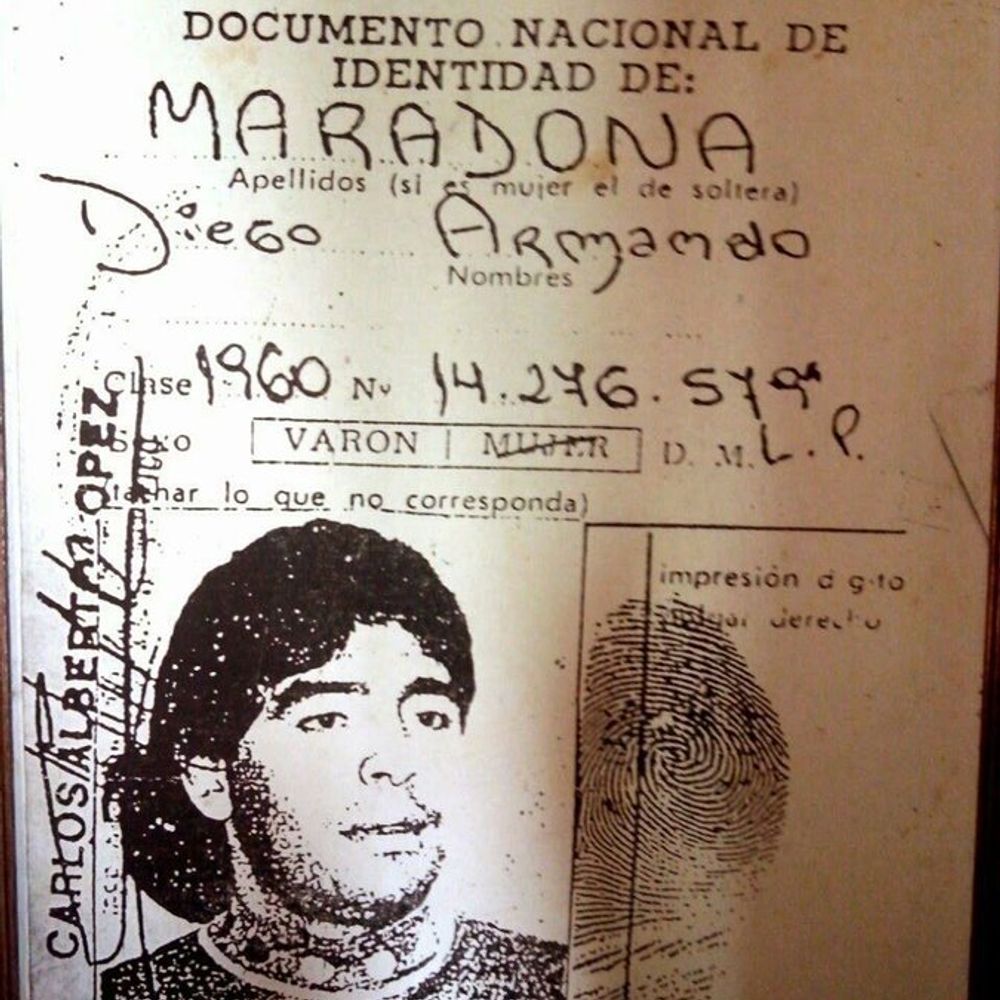 DOCUMENTO NACIONAL DE
IDENTIDAD DE:
MARADONA
Apellidos (si es mujer el de soltera)
Diego Armando
Nombres
Clase 1960 Nº 14.276.579
Sexo VARON | MUJER D. M. L. P.
(tachar lo que no corresponda)
impresión dígito
pulgar derecho
CARLOS ALBERTO LOPEZ